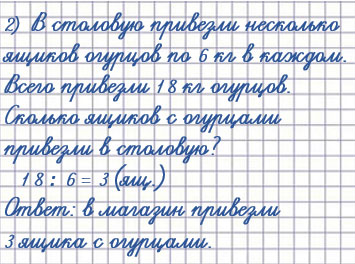 2) В столовую привезли несколько
ящиков огурцов по 6 кг в каждом.
Всего привезли 18 кг огурцов.
Сколько ящиков с огурцами
привезли в столовую?
18 : 6 = 3 (ящ.)
Ответ: в магазин привезли
3 ящика с огурцами.